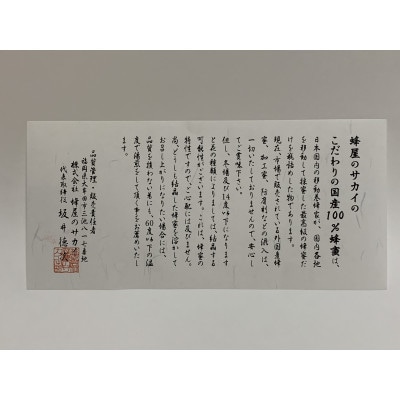 蜂屋のサカイの
こだわりの国産100%蜂蜜は、
日本国内の移動養蜂家が、国内各地
を移動して採蜜した最高級の蜂蜜だ
けを瓶詰めした物であります。
現在、市場で販売されている外国産蜂
蜜、加工蜜、阿賀利などの混入は、
一切いたしておりませんので、安心し
てご賞味下さい。
但し、冬場及び14度以下になります
と花の種類によりましては、結晶する
可能性がございます。これは、蜂蜜の
特性ですので、ご心配には及びません。
尚、どうしても結晶した蜂蜜を溶かして
お召し上がりになりたい場合には、
品質を損わない為にも、60度以下の温
度で湯煎をして頂く事をお薦めいたし
ます。
品質管理・販売責任者
福岡県大牟田市
株式会社 蜂屋のサカイ
代表取締役 坂井